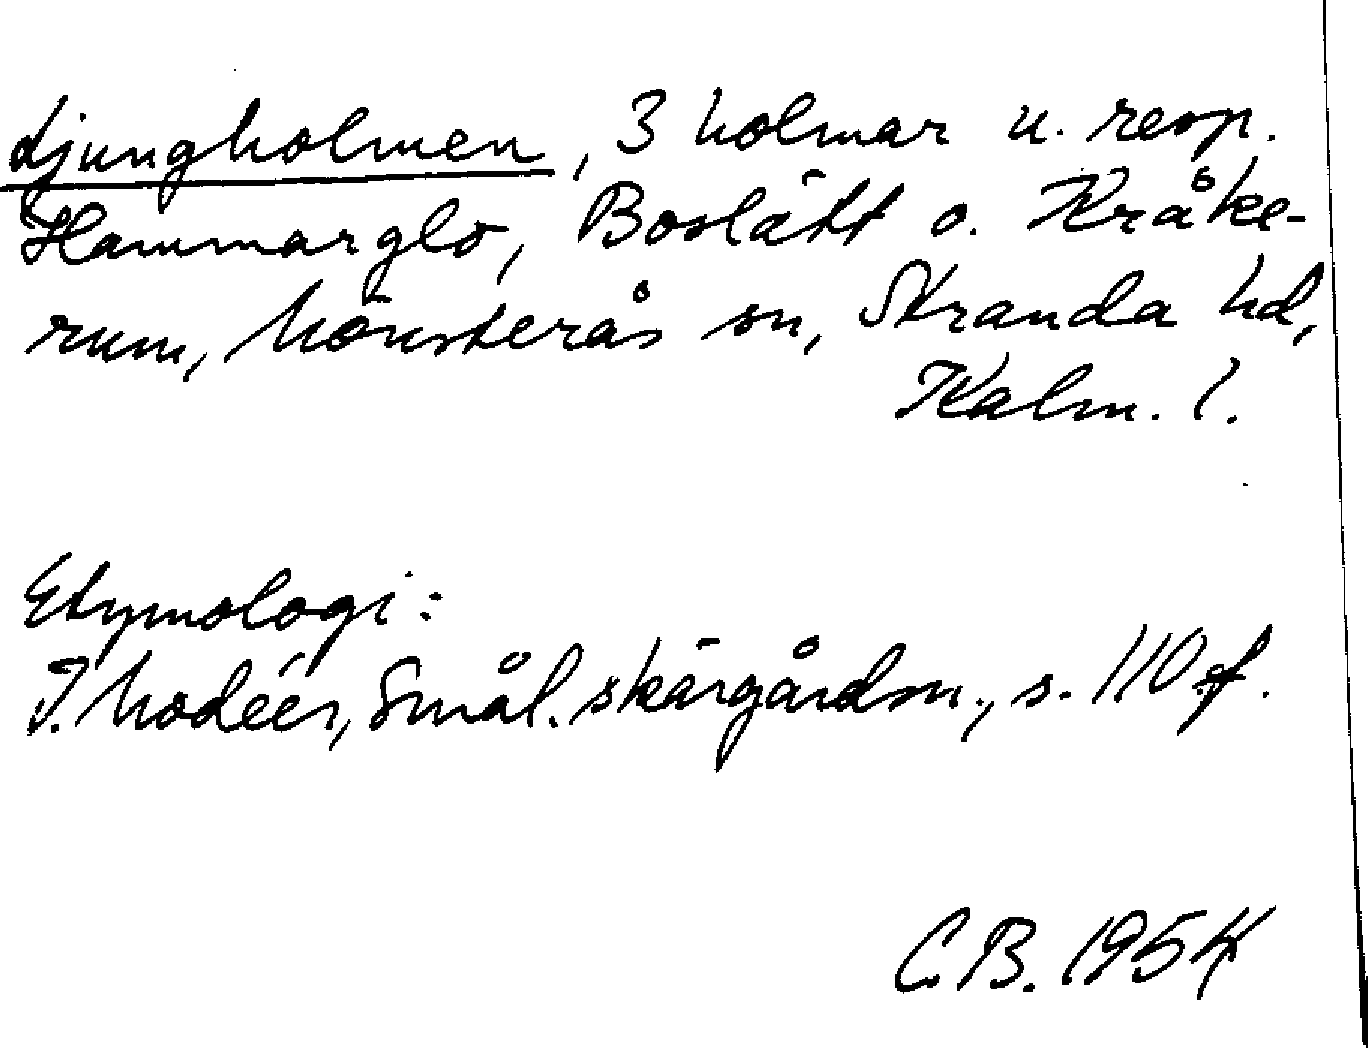 Ljungholmen, 3 holmar u. resp.
Hammarglo, Boslätt o. Kråke-
rum, Mönsterås sn, Stranda hd,
Kalm. l.
Etymologi:
I. Modéer, Smål. skärgårdsn., s. 110 f.
C.B. 1954